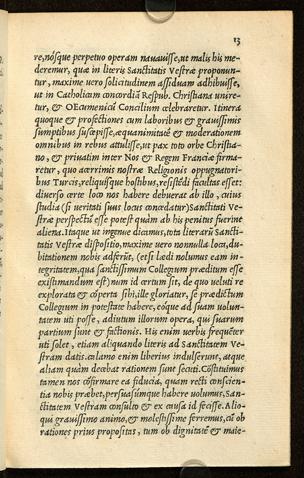 13
re, nósque perpetuo operam nauauisse, ut malis his me-
deremur, quæ in literis Sanctitatis Vestræ proponun-
tur, maxime uero solicitudinem assiduam adhibuisse,
ut in Catholicam concordiã Respub. Christiana unire-
tur, & OEcumenicũ Concilium celebraretur. Itinera
quoque & profectiones cum laboribus & grauissimis
sumptibus suscepisse, æquanimitatẽ & moderationem
omnibus in rebus attulisse, ut pax toto orbe Christia-
no, & priuatim inter Nos & Regem Franciæ firma-
retur, quo acerrimis nostræ Religionis oppugnatori-
bus Turcis, reliquisque hostibus, resistẽdi facultas esset:
diuerso certe loco nos habere debuerat ab illo, cuius
studia (si ueritati suus locus concedatur) Sanctitati Ve-
stræ perspectũ esse potest quàm ab his penitus fuerint
aliena. Itaque ut ingenue dicamus, tota literarũ Sancti-
tatis Vestræ dispositio, maxime uero nonnulla loca, du-
bitationem nobis adferũt, (etsi lædi nolumus eam in-
tegritatem, qua sanctissimum Collegium præditum esse
existimandum est) num id certum sit, de quo ueluti re
explorata & cõperta sibi, ille gloriatur, se prædictum
Collegium in potestate habere, eòque ad suam uolun-
tatem uti posse, adiutum illorum opera, qui suarum
partium sunt & factionis. His enim uerbis frequẽter
uti solet, etiam aliquando literis ad Sanctitatem Ve-
stram datis. calamo enim liberius indulserunt, atque
aliam quàm decebat rationem sunt secuti. Cõstituimus
tamen nos cõfirmare ea fiducia, quam recti conscien-
tia nobis præbet, persuasúmque habere uolumus, San-
ctitatem Vestram consulto & ex causa id fecisse. Alio-
qui grauissimo animo, & molestissime ferremus, cũ ob
rationes prius propositas, tum ob dignitatẽ & maie-